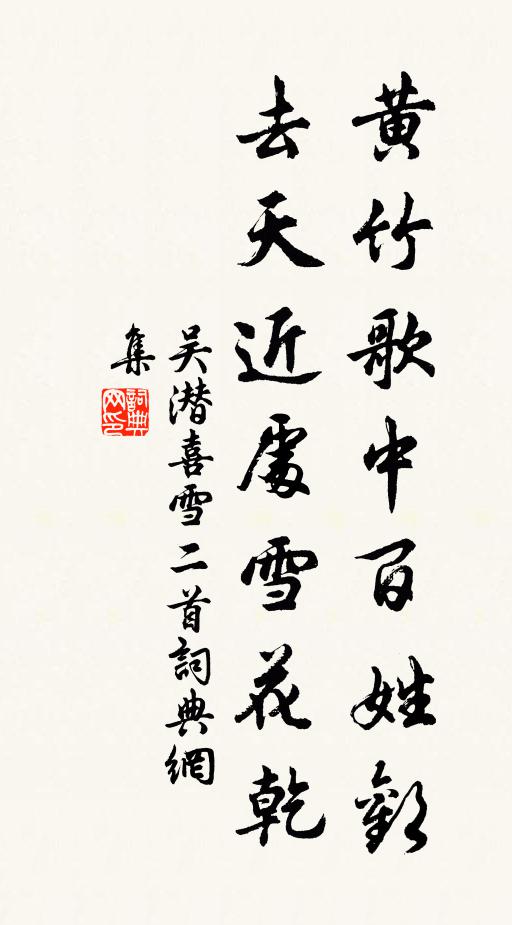 黄竹歌中百姓歡
去天近處雪花乾
吴潜喜雪二首詞典網
集
詞典网印